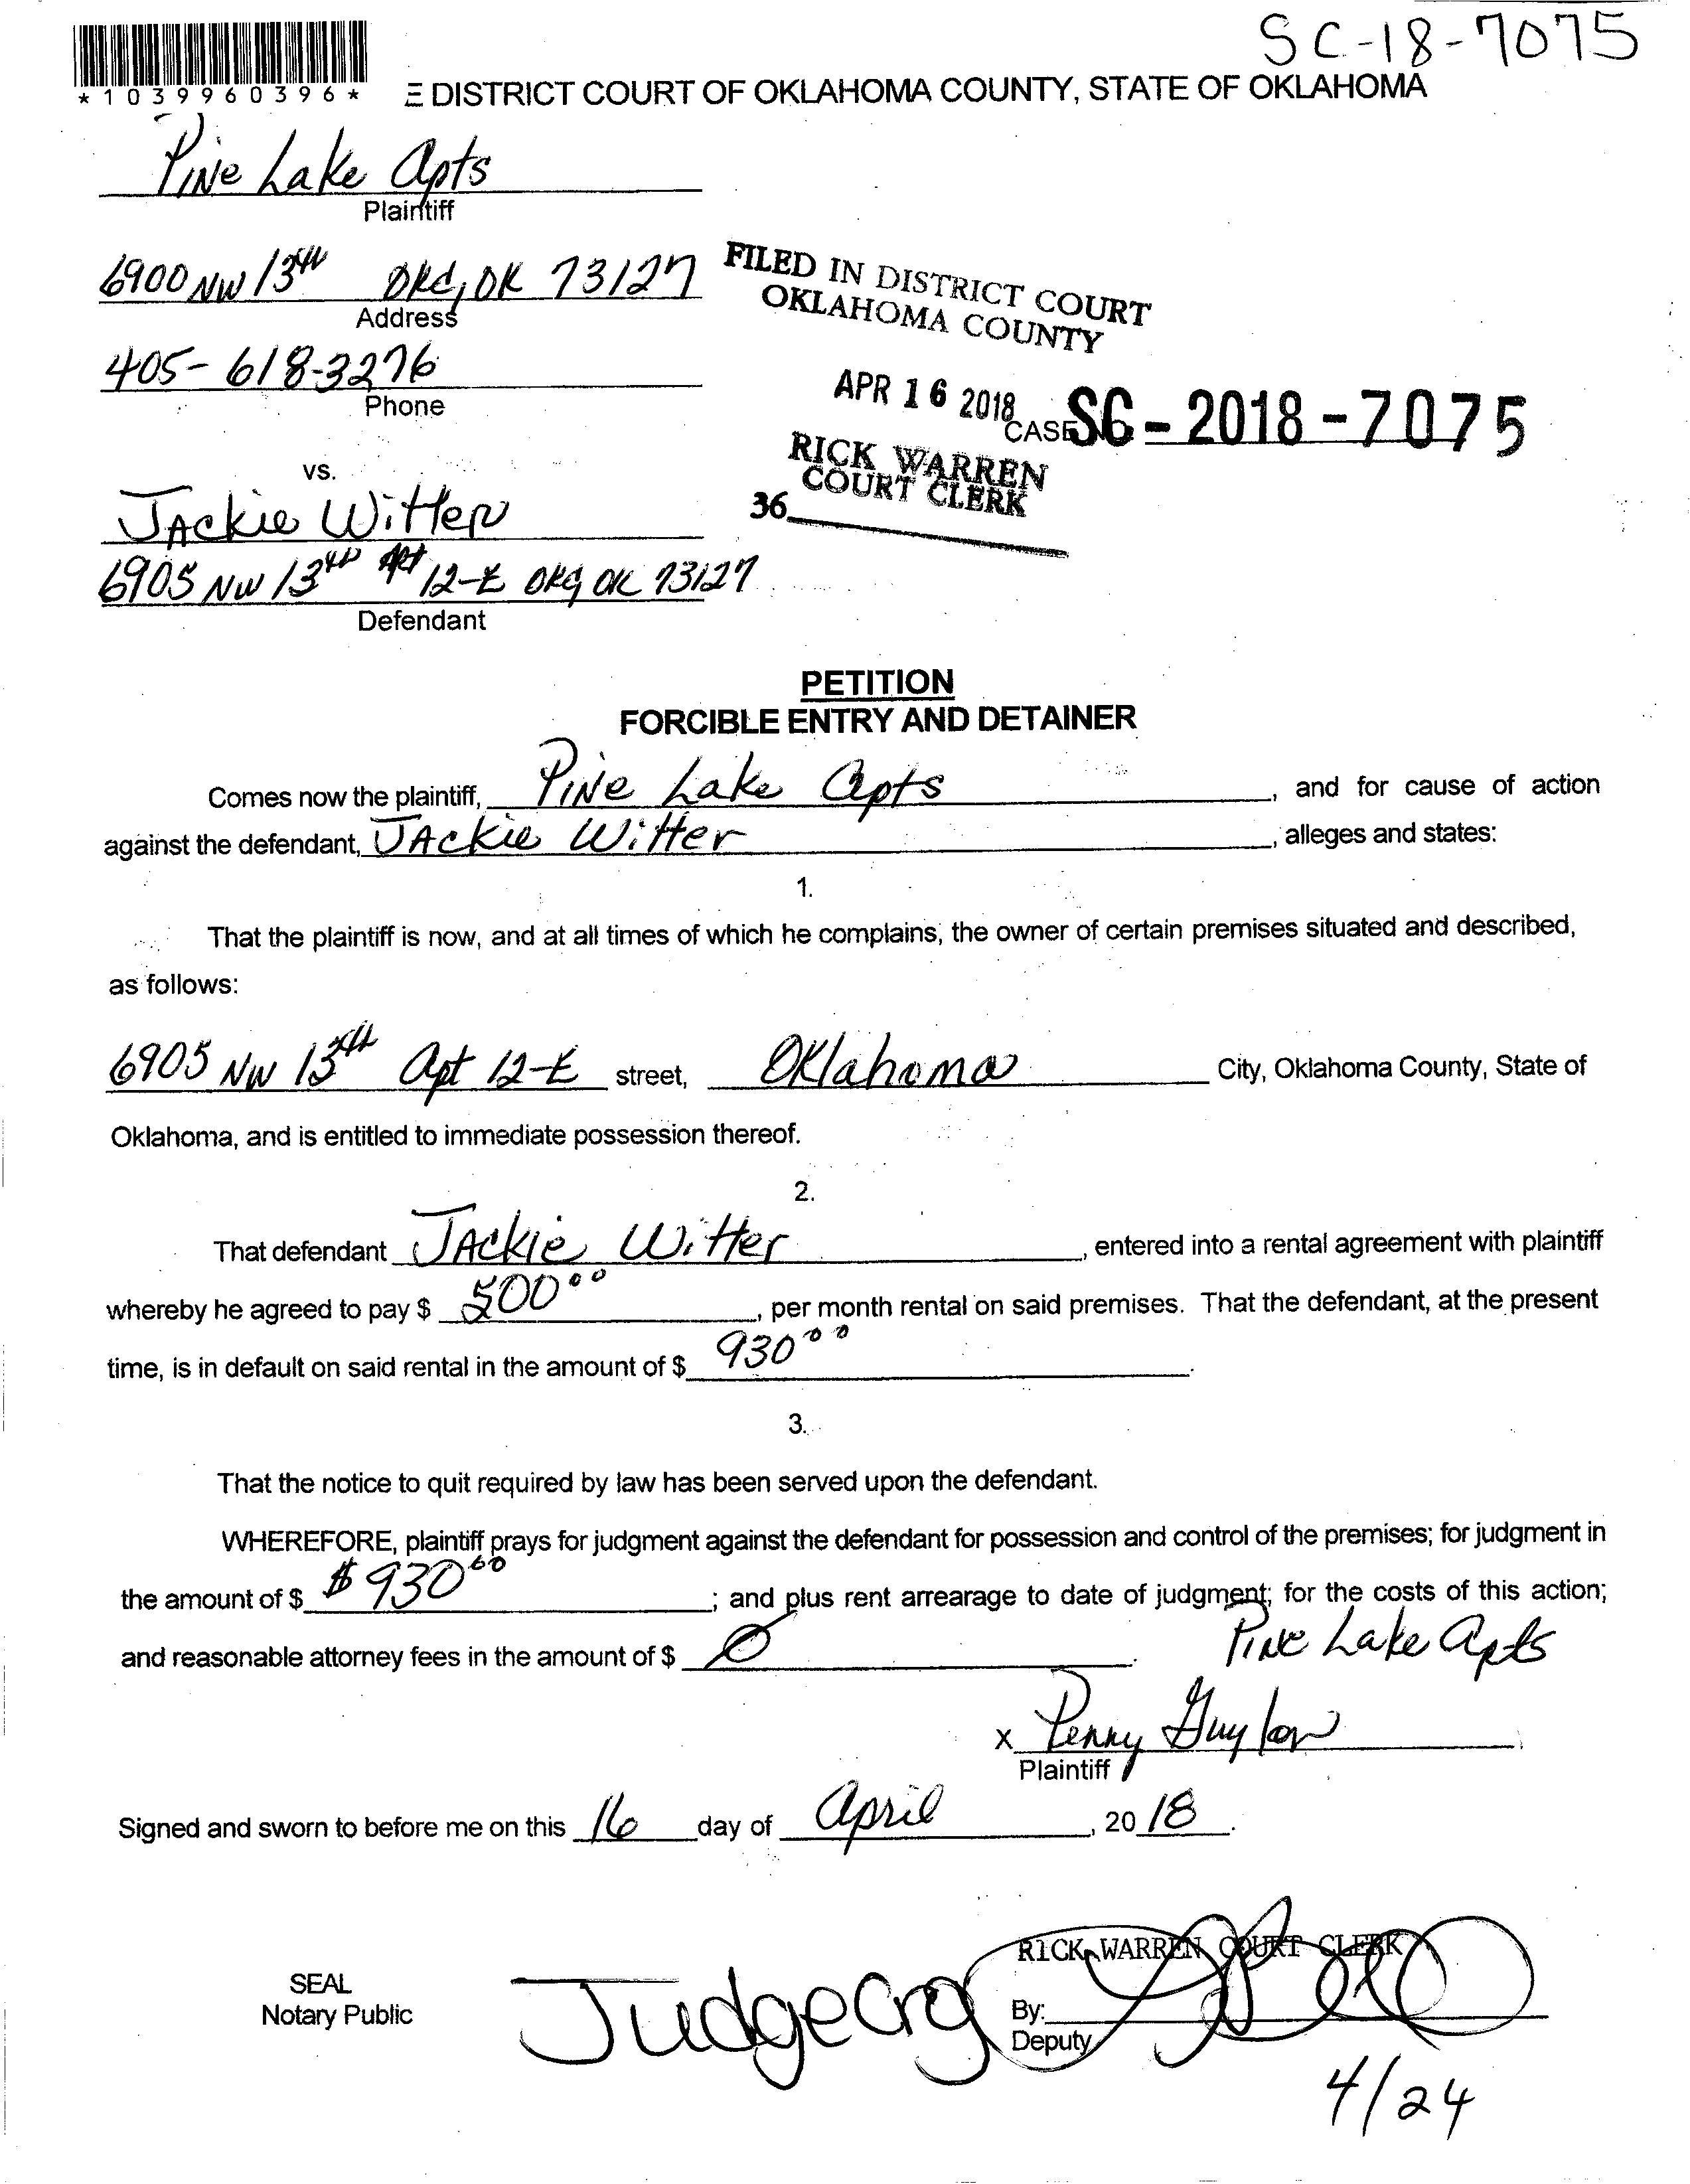 SC-18-7075
*1039960396*
E DISTRICT COURT OF OKLAHOMA COUNTY, STATE OF OKLAHOMA
Pine Lake Apts
Plaintiff
6900 NW 13th OKC, OK 73127
Address
405-618-3276
Phone
FILED IN DISTRICT COURT
OKLAHOMA COUNTY
APR 16 2018
CASE SC-2018-7075
RICK WARREN
COURT CLERK
36
vs.
Jackie Witter
6905 NW 13th Apt 12-E OKC OK 73127
Defendant
PETITION
FORCIBLE ENTRY AND DETAINER
Comes now the plaintiff, Pine Lake Apts, and for cause of action
against the defendant, Jackie Witter, alleges and states:
1.
That the plaintiff is now, and at all times of which he complains, the owner of certain premises situated and described,
as follows:
6905 NW 13th Apt 12-E street, Oklahoma City, Oklahoma County, State of
Oklahoma, and is entitled to immediate possession thereof.
2.
That defendant Jackie Witter, entered into a rental agreement with plaintiff
whereby he agreed to pay $ 500 00, per month rental on said premises. That the defendant, at the present
time, is in default on said rental in the amount of $ 930 00.
3.
That the notice to quit required by law has been served upon the defendant.
WHEREFORE, plaintiff prays for judgment against the defendant for possession and control of the premises; for judgment in
the amount of $ $930 00; and plus rent arrearage to date of judgment; for the costs of this action;
and reasonable attorney fees in the amount of $ 0.
Pine Lake Apts
x Penny Guylon
Plaintiff
Signed and sworn to before me on this 16 day of April, 2018.
RICK WARREN COURT CLERK
SEAL
Notary Public
By:
Deputy
4/24